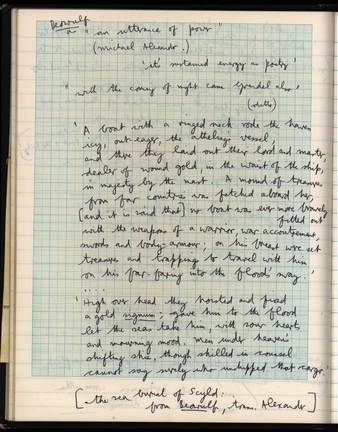 Beowulf
a "an utterance of power"
(Michael Alexander.)
'its sustained energy as poetry'
"with the coming of night came Grendel also"
(ditto)
'A boat with a ringed neck rode the haven
icy, out-eager, the atheling's vessel
and there they laid out their lord and master,
dealer of wound gold, in the waist of the ship,
in majesty by the mast. A mound of treasures
from far countries was fetched aboard her,
[and it is said that] no boat was ever more bravely
fitted out
with the weapons of a warrior, war accoutrement,
swords and body-armour; on his breast were set
treasures and trappings to travel with him
on his far-faring into the flood's sway.'
....
'High over head they hoisted and fixed
a gold signum; gave him to the flood
let the seas take him, with sour hearts
and mourning mood. Men under heaven's
shifting skies, though skilled in counsel
cannot say surely who unshipped that cargo.'
[- the sea burial of Scyld.
from Beowulf, trans. Alexander]